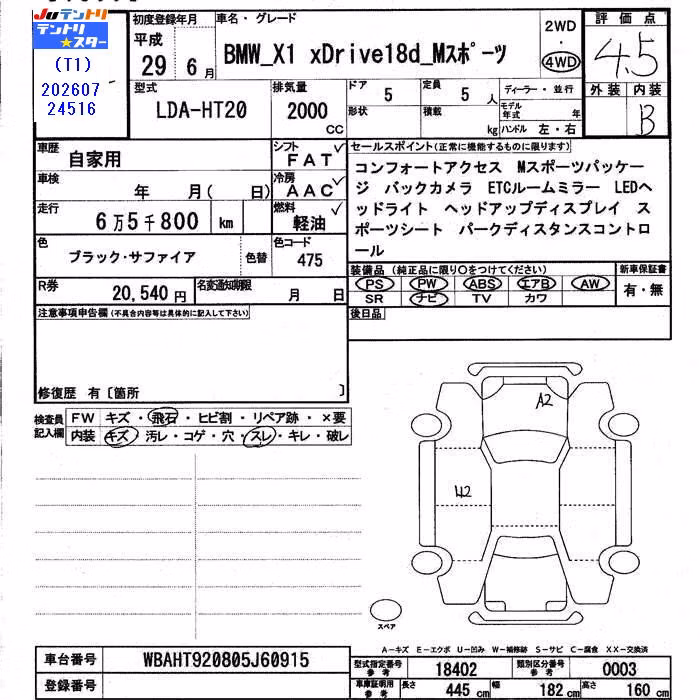 JU テントリ
テントリ★スター
(T1)
202607
24516
初度登録年月
平成
29 6月
車名・グレード
BMW_X1 xDrive18d_Mスポーツ
2WD
・
4WD
評価点
4.5
外装 内装
B
型式
LDA-HT20
排気量
2000
cc
ドア
5
定員
5人
形状
積載
kg
ディーラー・並行
モデル年式 年
ハンドル 左・右
車歴
自家用
シフト
FAT
車検
年 月( 日)
冷房
AAC
走行
6万5千800 km
燃料
軽油
色
ブラック・サファイア
色替
色コード
475
R券
20,540円
名変通知期限
月 日
セールスポイント(正常に機能するものに限ります)
コンフォートアクセス Mスポーツパッケー
ジ バックカメラ ETCルームミラー LEDヘ
ッドライト ヘッドアップディスプレイ ス
ポーツシート パークディスタンスコントロ
ール
装備品(純正品に限り○をつけてください)
PS PW ABS エアB AW
SR ナビ TV カワ
新車保証書
有・無
後日品
注意事項申告欄(不具合内容等は具体的に記入して下さい)
修復歴 有〔箇所 〕
検査員記入欄
FW キズ・飛石・ヒビ割・リペア跡・×要
内装 キズ・汚レ・コゲ・穴・スレ・キレ・破レ
A2
U2
スペア
A-キズ E-エクボ U-凹み W-補修跡 S-サビ C-腐食 XX-交換済
車台番号
WBAHT920805J60915
登録番号
型式指定番号 参考
18402
類別区分番号 参考
0003
車庫証明用 参考
長さ 445 cm
幅 182 cm
高さ 160 cm